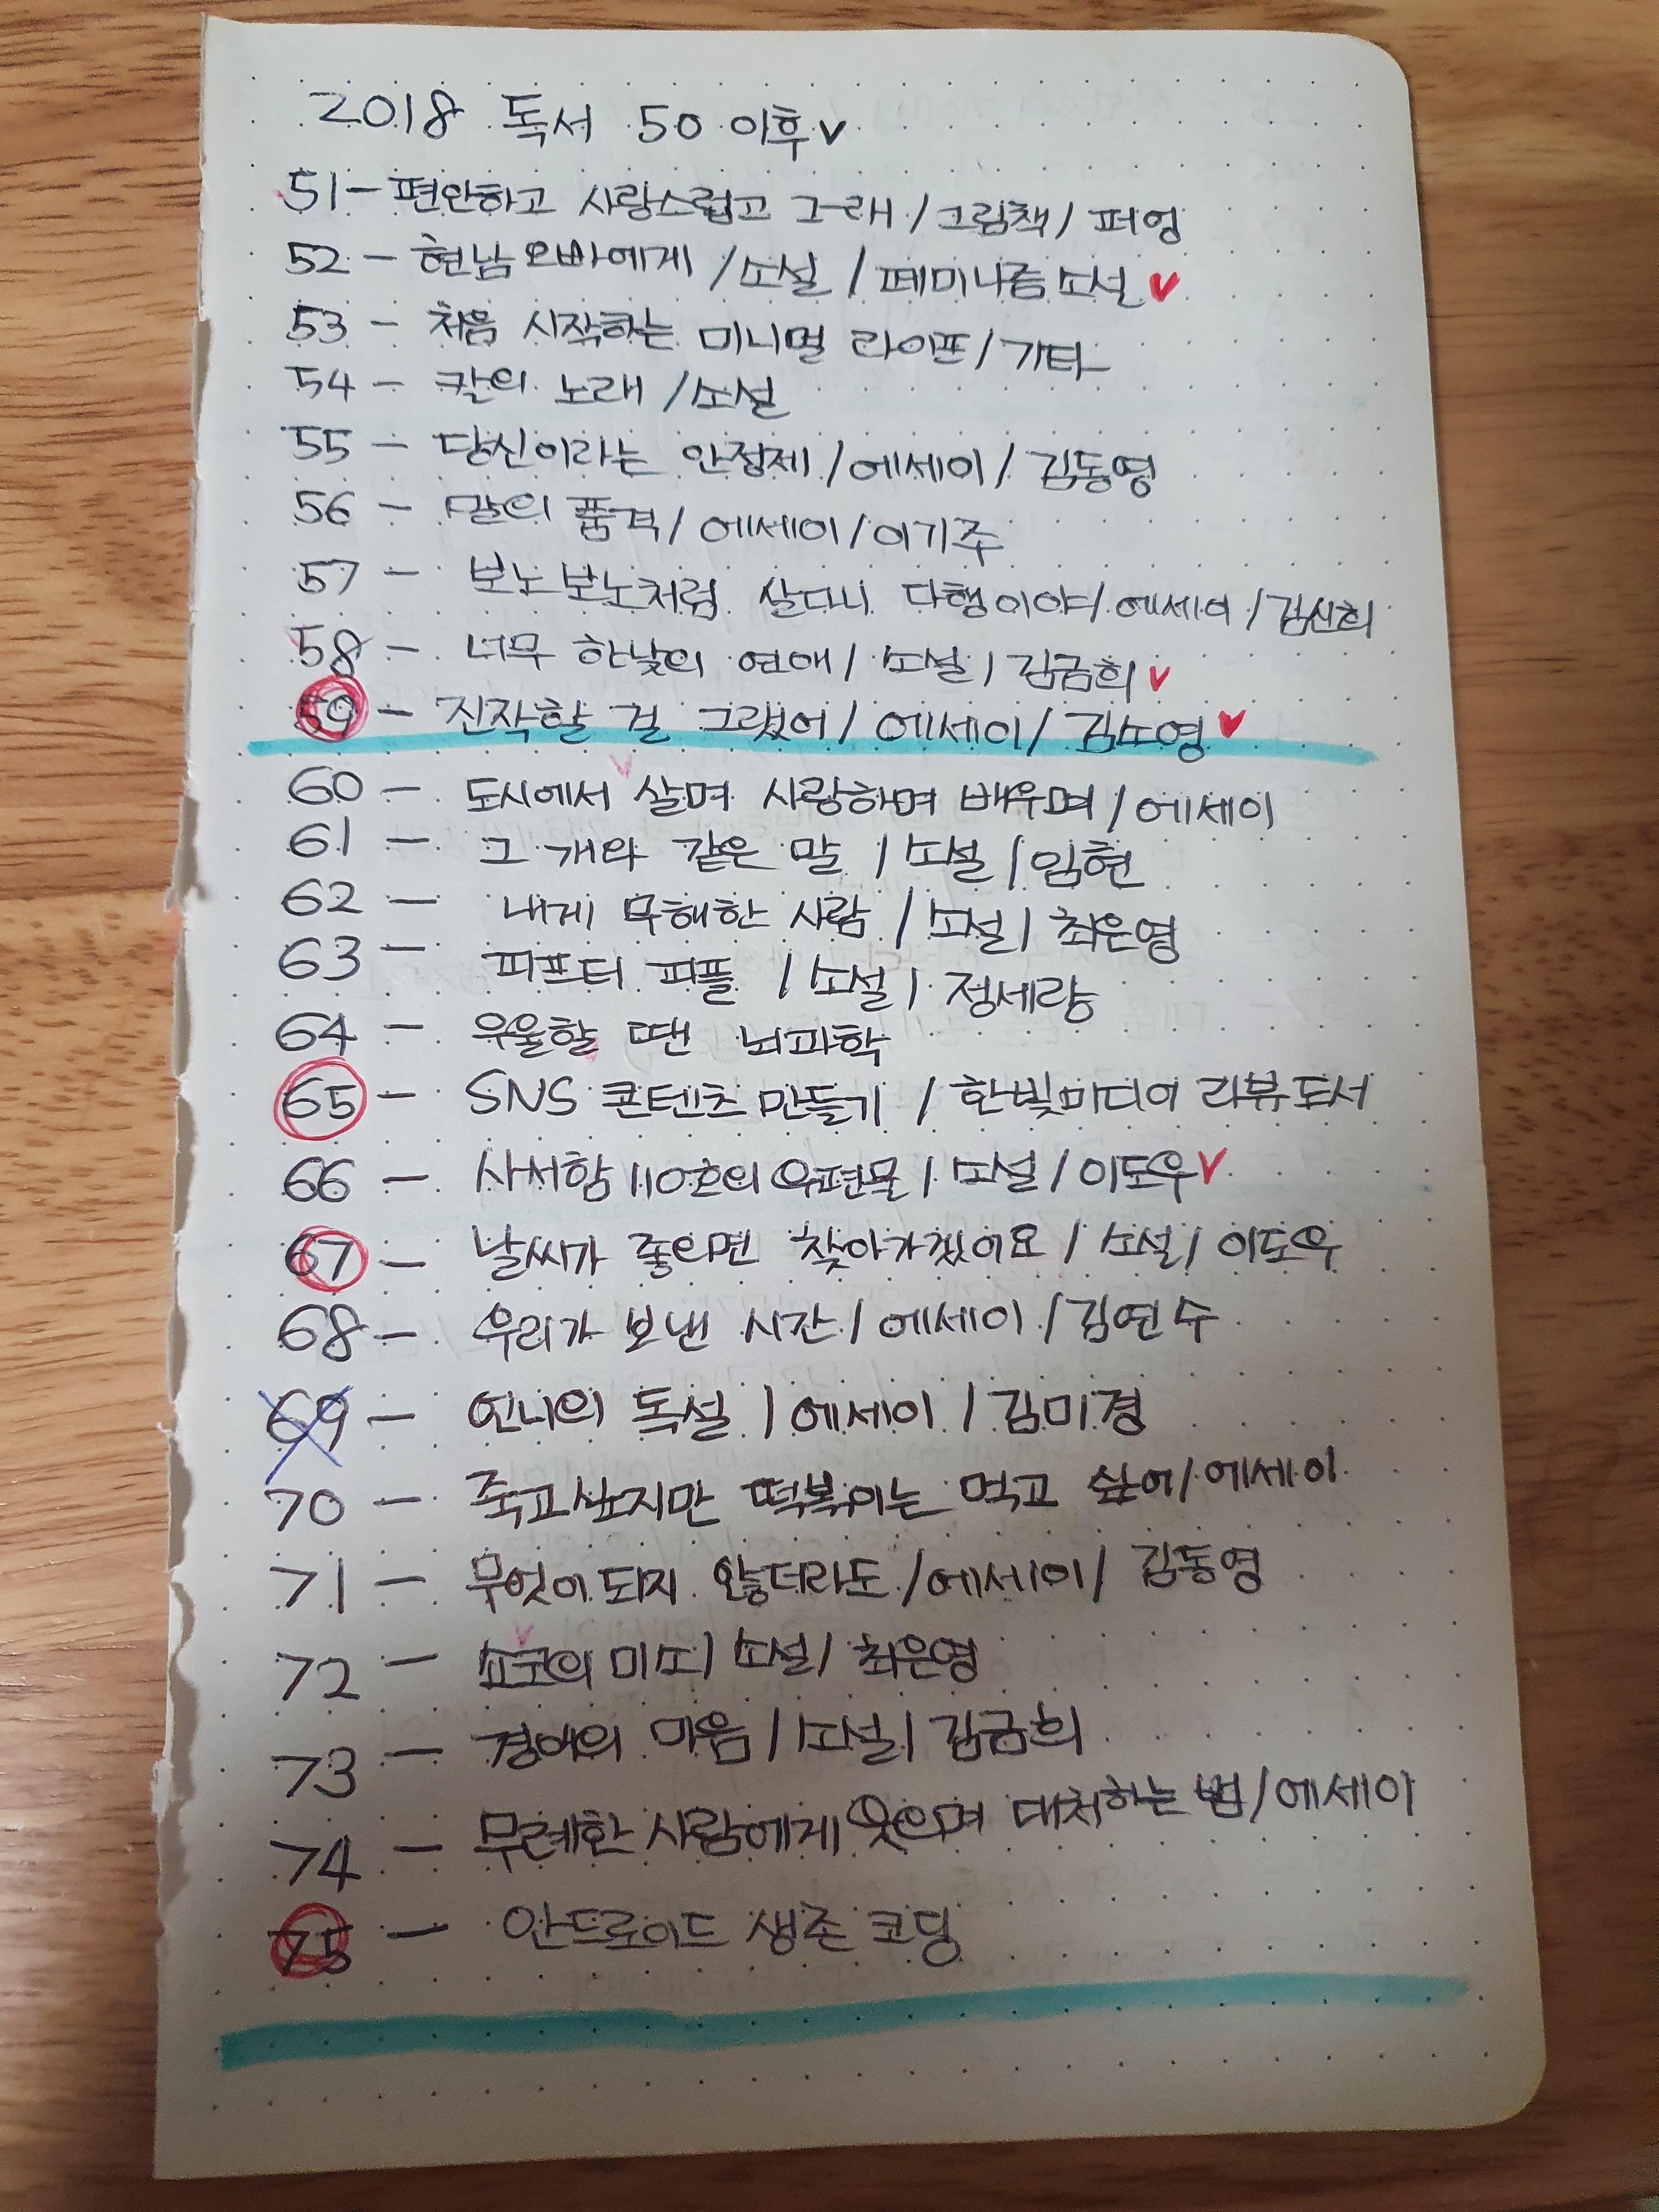 2018 독서 50 이후 v
51 - 편안하고 사랑스럽고 그래 / 그림책 / 퍼엉
52 - 현남오빠에게 / 소설 / 페미니즘소설 v
53 - 처음 시작하는 미니멀 라이프 / 기타
54 - 칼의 노래 / 소설
55 - 당신이라는 안정제 / 에세이 / 김동영
56 - 말의 품격 / 에세이 / 이기주
57 - 보노보노처럼 살다니 다행이야 / 에세이 / 김신회
58 - 너무 한낮의 연애 / 소설 / 김금희 v
59 - 진작할 걸 그랬어 / 에세이 / 김소영 v
60 - 도시에서 살며 사랑하며 배우며 / 에세이
61 - 그 개와 같은 말 / 소설 / 임현
62 - 내게 무해한 사람 / 소설 / 최은영
63 - 피프티 피플 / 소설 / 정세랑
64 - 우울할 땐 뇌과학
65 - SNS 콘텐츠 만들기 / 한빛미디어 리뷰도서
66 - 사서함 110호의 우편물 / 소설 / 이도우 v
67 - 날씨가 좋으면 찾아가겠어요 / 소설 / 이도우
68 - 우리가 보낸 시간 / 에세이 / 김연수
69 - 언니의 독설 / 에세이 / 김미경
70 - 죽고싶지만 떡볶이는 먹고 싶어 / 에세이
71 - 무엇이 되지 않더라도 / 에세이 / 김동영
72 - 쇼코의 미소 / 소설 / 최은영
73 - 경애의 마음 / 소설 / 김금희
74 - 무례한 사람에게 웃으며 대처하는 법 / 에세이
75 - 안드로이드 생존 코딩